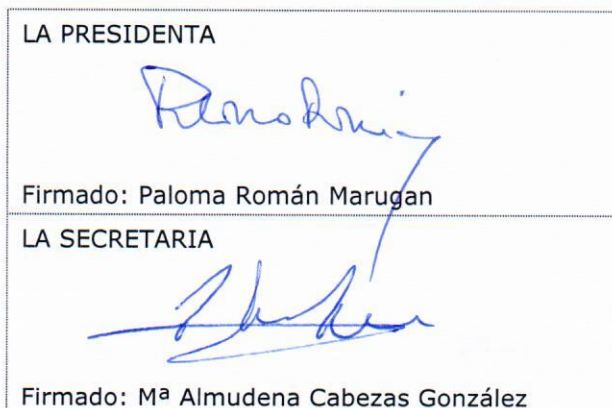 LA PRESIDENTA
Firmado: Paloma Román Marugan
LA SECRETARIA
Firmado: Mª Almudena Cabezas González